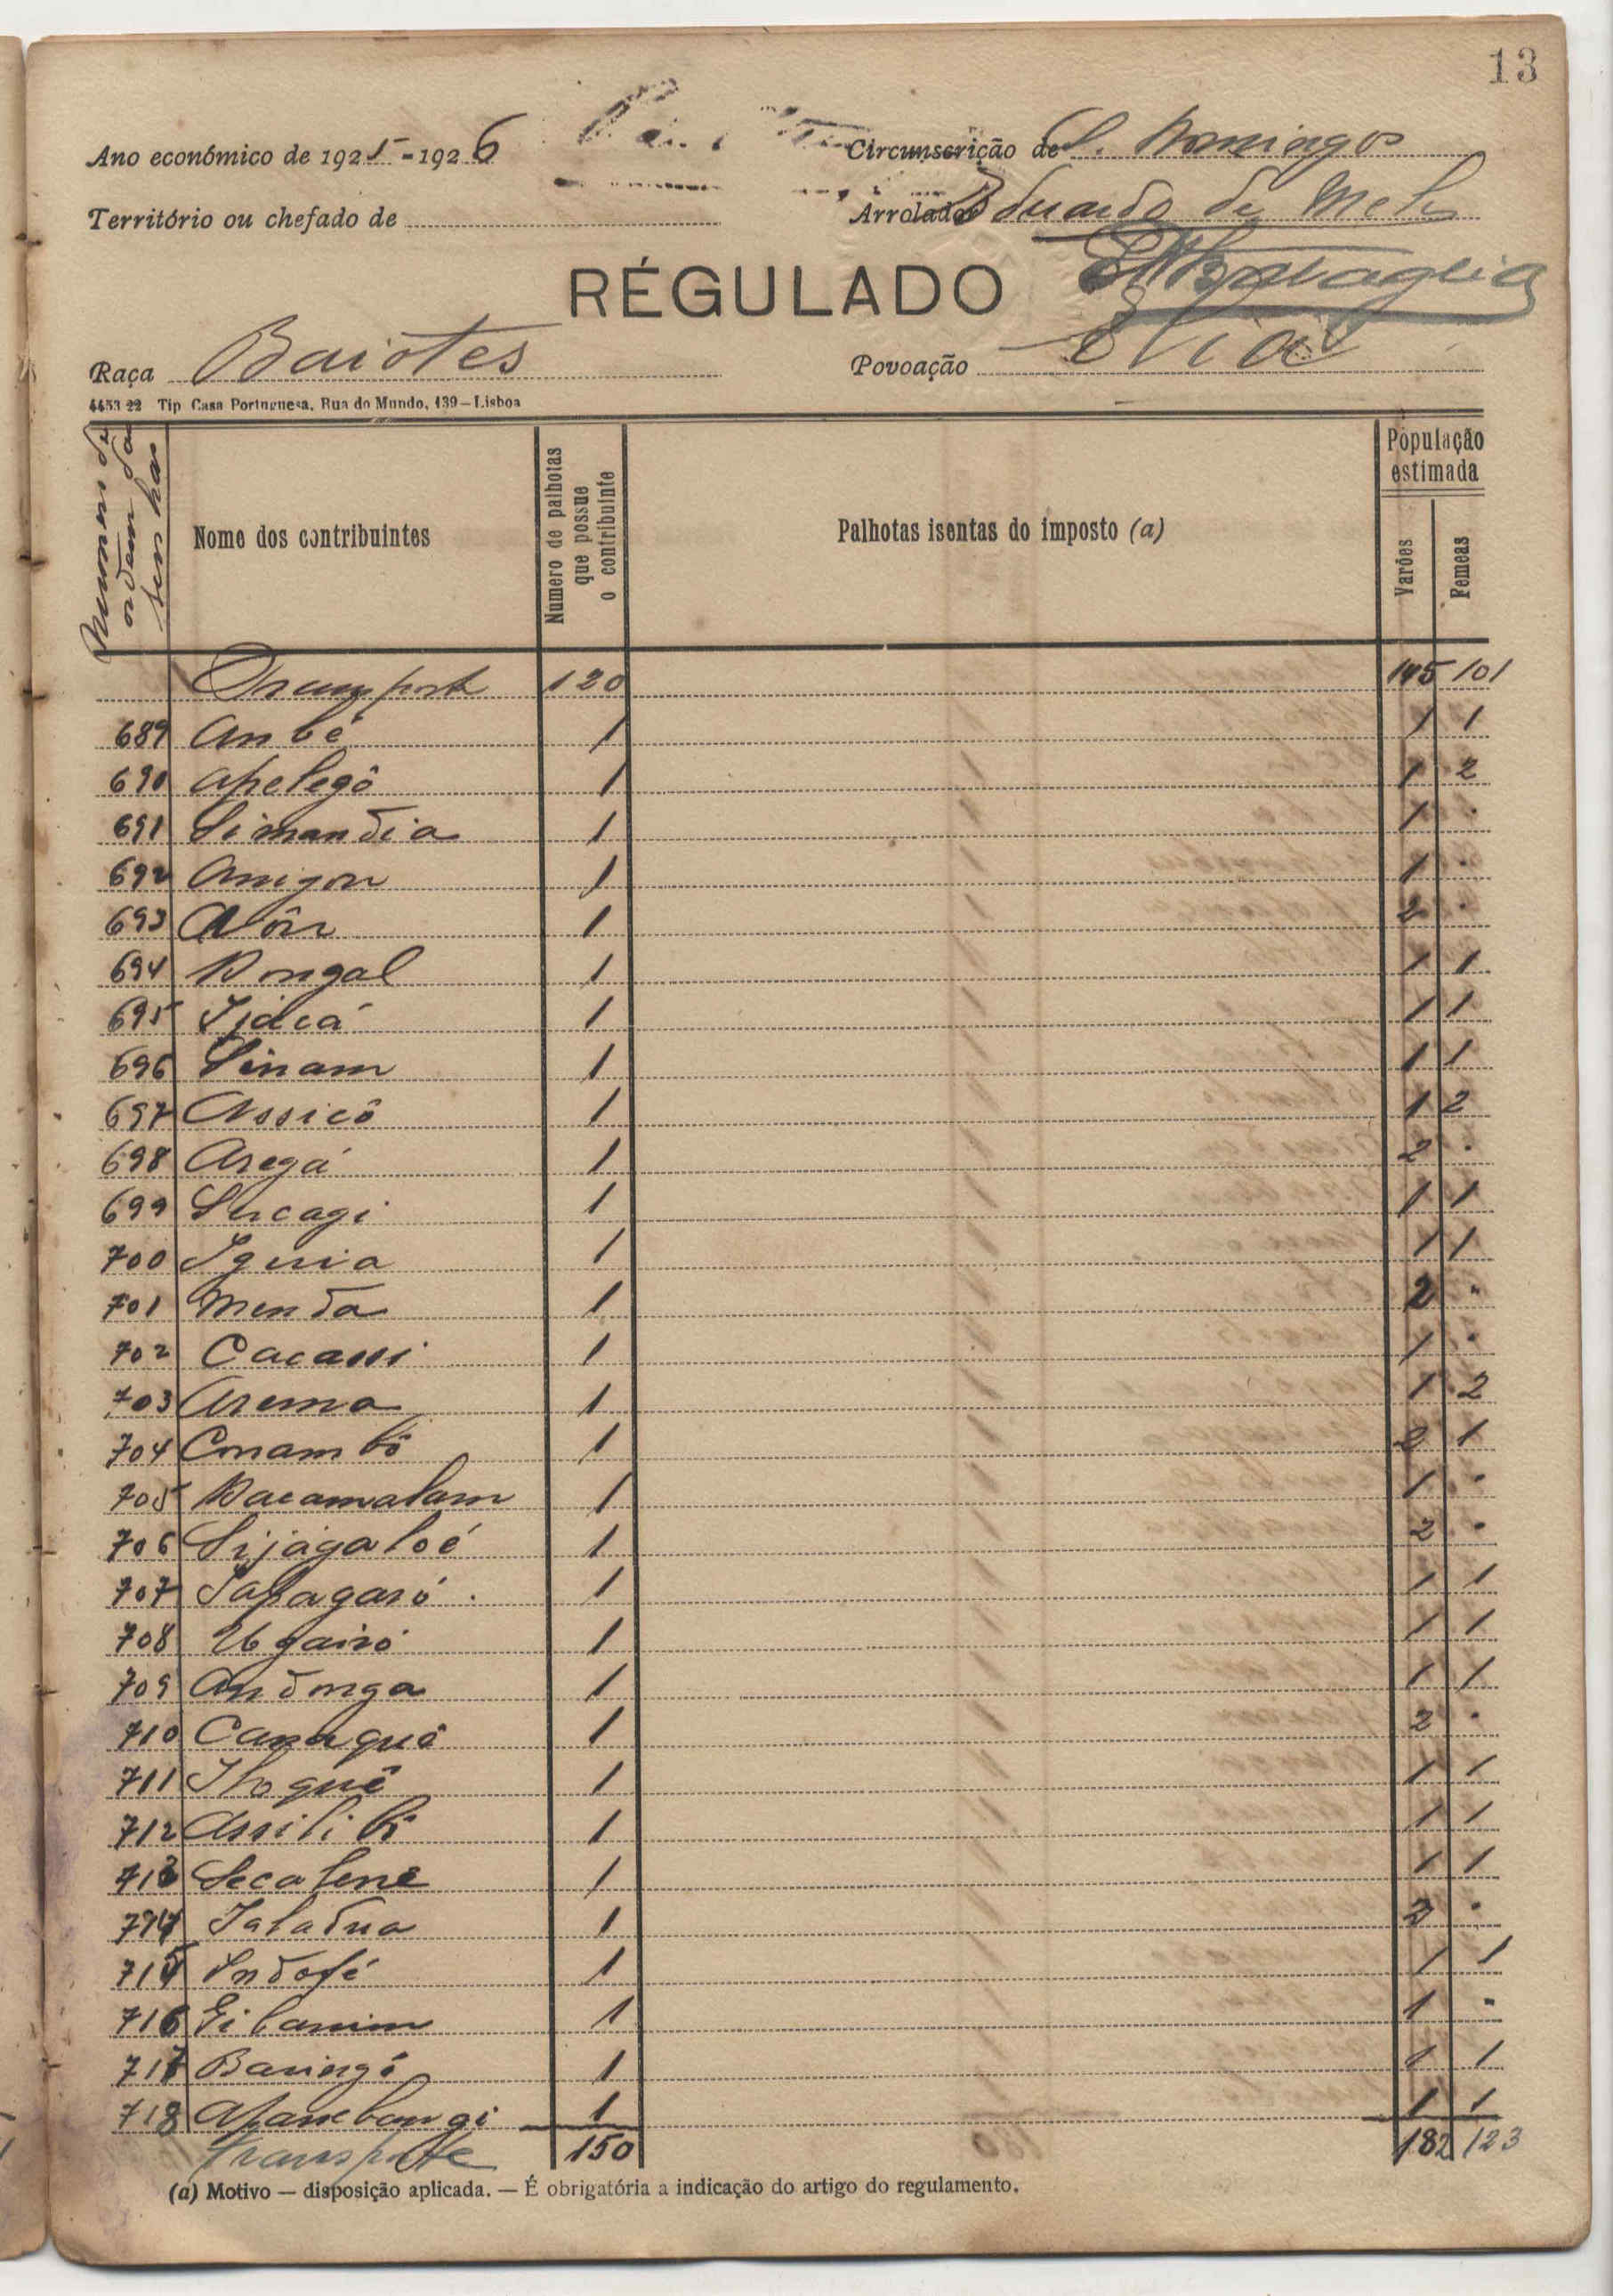 13
Ano económico de 1925-1926 Circunscrição de S. Domingos
Território ou chefado de Arrolador Eduardo de Melo
RÉGULADO
Raça Baiotes Povoação Elia
4453 22 Tip Casa Portuguesa, Rua do Mundo, 139—Lisboa
Numero de ordem das senhas
Nome dos contribuintes
Número de palhotas que possue o contribuinte
Palhotas isentas do imposto (a)
População estimada
Varões
Femeas
Transporte 120 145 101
689 Anbé 1 1 1
690 Apelegô 1 1 2
691 Simandia 1 1 "
692 Anigon 1 1 "
693 Alôn 1 2 "
694 Dongal 1 1 1
695 Ijacá 1 1 1
696 Sinam 1 1 1
697 Assicô 1 1 2
698 Aregá 1 2 "
699 Sucagi 1 1 1
700 Iguia 1 1 1
701 Menda 1 2 "
702 Cacassi 1 1 "
703 Arema 1 1 2
704 Conambô 1 2 1
705 Dacamalam 1 1 "
706 Sijàgaloé 1 2 "
707 Sapagaró 1 1 1
708 Ugairó 1 1 1
709 Andonga 1 1 1
710 Canaguê 1 2 "
711 Ihoguê 1 1 1
712 Assilibi 1 1 1
713 Secalene 1 1 1
714 Jaladua 1 2 "
715 Indofé 1 1 1
716 Gibanim 1 1 "
717 Baringó 1 1 1
718 Apanebangi 1 1 1
Transporte 150 182 123
(a) Motivo — disposição aplicada. — É obrigatória a indicação do artigo do regulamento.